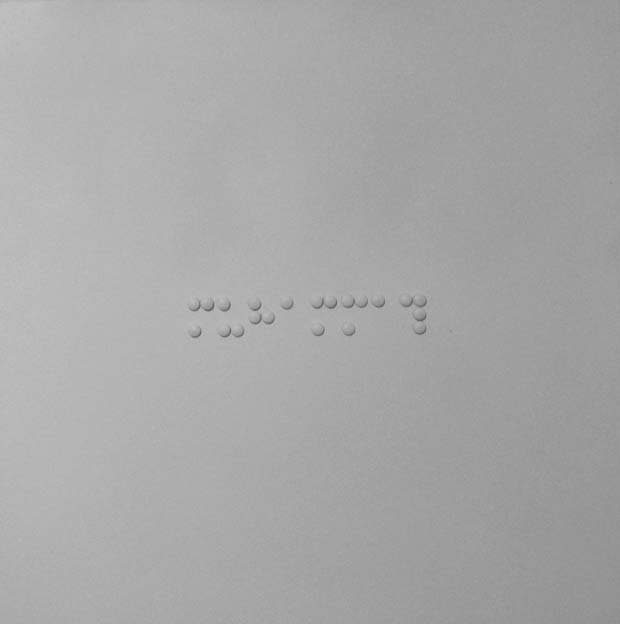 ⠍⠥⠓⠁⠍⠍⠁⠹